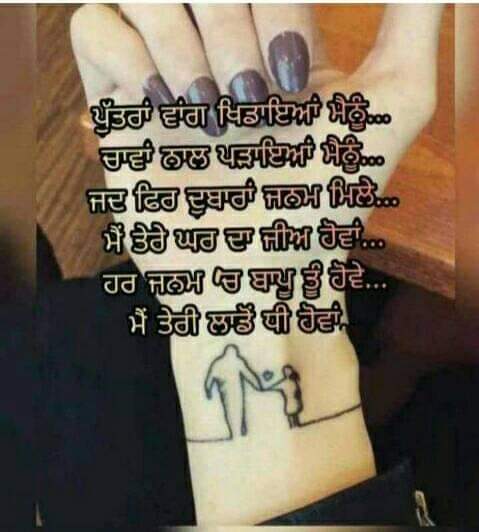 ਪੁੱਤਰਾਂ ਵਾਂਗ ਖਿਡਾਇਆਂ ਮੈਨੂੰ...
ਚਾਵਾਂ ਨਾਲ ਪੜਾਇਆਂ ਮੈਨੂੰ...
ਜਦ ਫਿਰ ਦੁਬਾਰਾਂ ਜਨਮ ਮਿਲੇ...
ਮੈਂ ਤੇਰੇ ਘਰ ਦਾ ਜੀਅ ਹੋਵਾਂ...
ਹਰ ਜਨਮ 'ਚ ਬਾਪੂ ਤੂੰ ਹੋਵੇ...
ਮੈਂ ਤੇਰੀ ਲਾਡੋਂ ਧੀ ਹੋਵਾਂ.